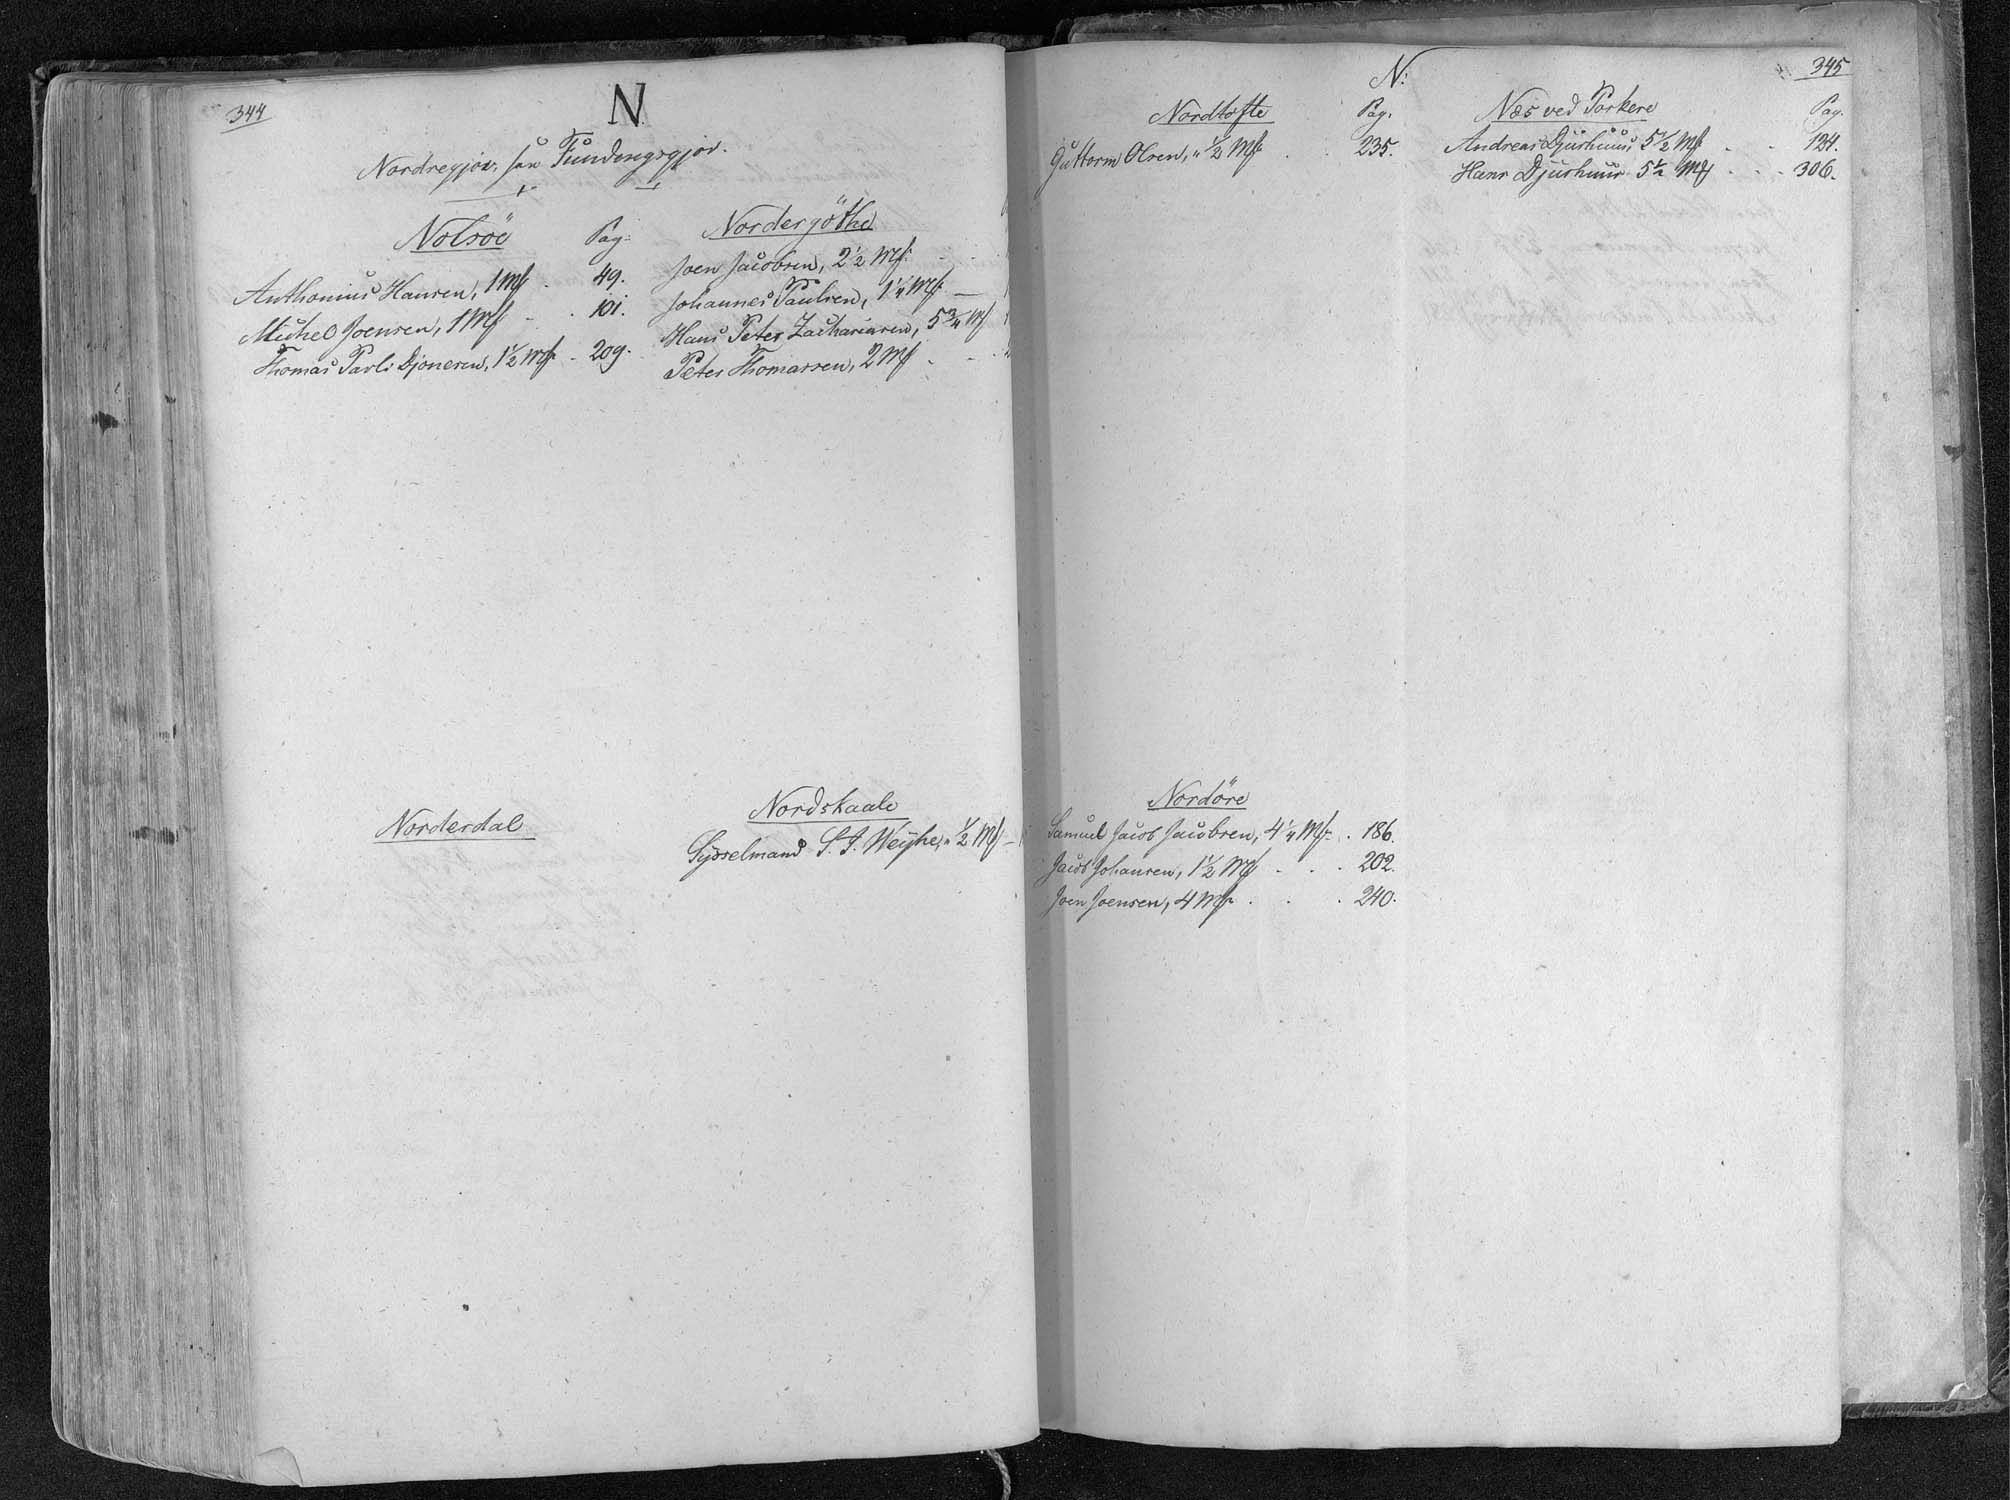 344
N
Nordregjov, saa Fundengsgjov.
Nolsöe Pag:
Anthonius Hansen, 1 Mk 49.
Michel Joensen, 1 Mk 101.
Thomas Pavli Djonesen, 1 1/2 Mk 209.
Nordergöthe
Joen Jacobsen, 2 1/2 Mk
Johannes Paulsen, 1 1/4 Mk
Hans Peter Zachariasen, 5 3/4 Mk
Peter Thomassen, 2 Mk
Norderdal
Nordskaale
Sysselmand S. J. Weyhe, " 1/2 Mk
N: 345
Nordtofte Pag.
Guttorm Olsen, " 1/2 Mk 235.
Næs ved Porkere Pag.
Andreas Djurhuus 5 1/2 Mk 134.
Hans Djurhuus 5 1/2 Mk 306.
Nordöre
Samuel Jacob Jacobsen, 4 1/4 Mk 186.
Jacob Johansen, 1 1/2 Mk 202.
Joen Joensen, 4 Mk 240.